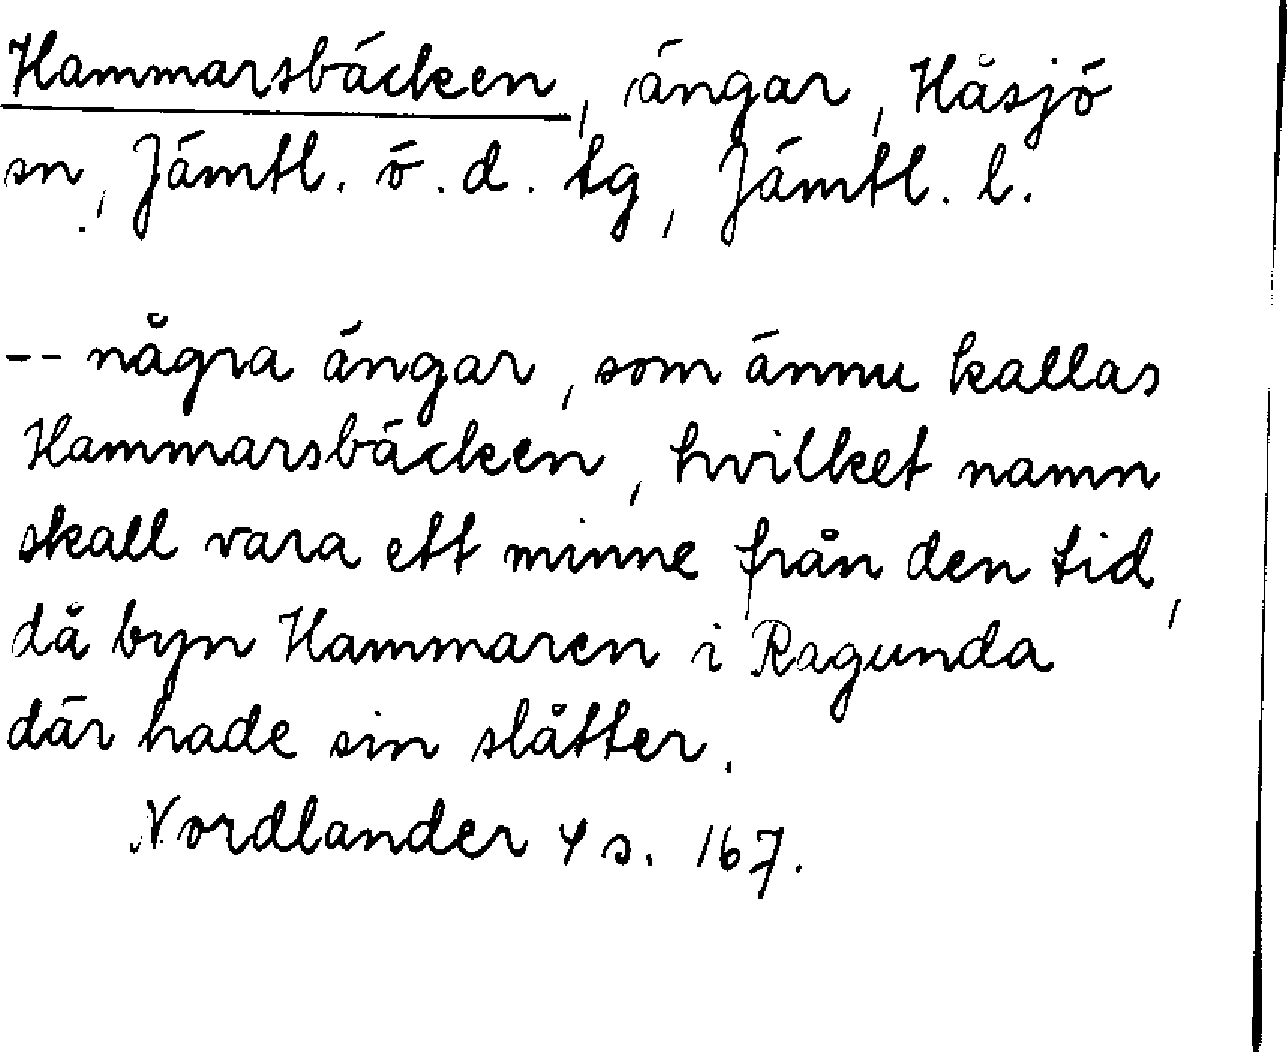 Hammarsbäcken, ängar, Håsjö
sn, Jämtl. ö. d. tg, Jämtl. l.
-- några ängar, som ännu kallas
Hammarsbäcken, hvilket namn
skall vara ett minne från den tid,
då byn Hammaren i Ragunda
där hade sin slåtter.
Nordlander 4 s. 167.